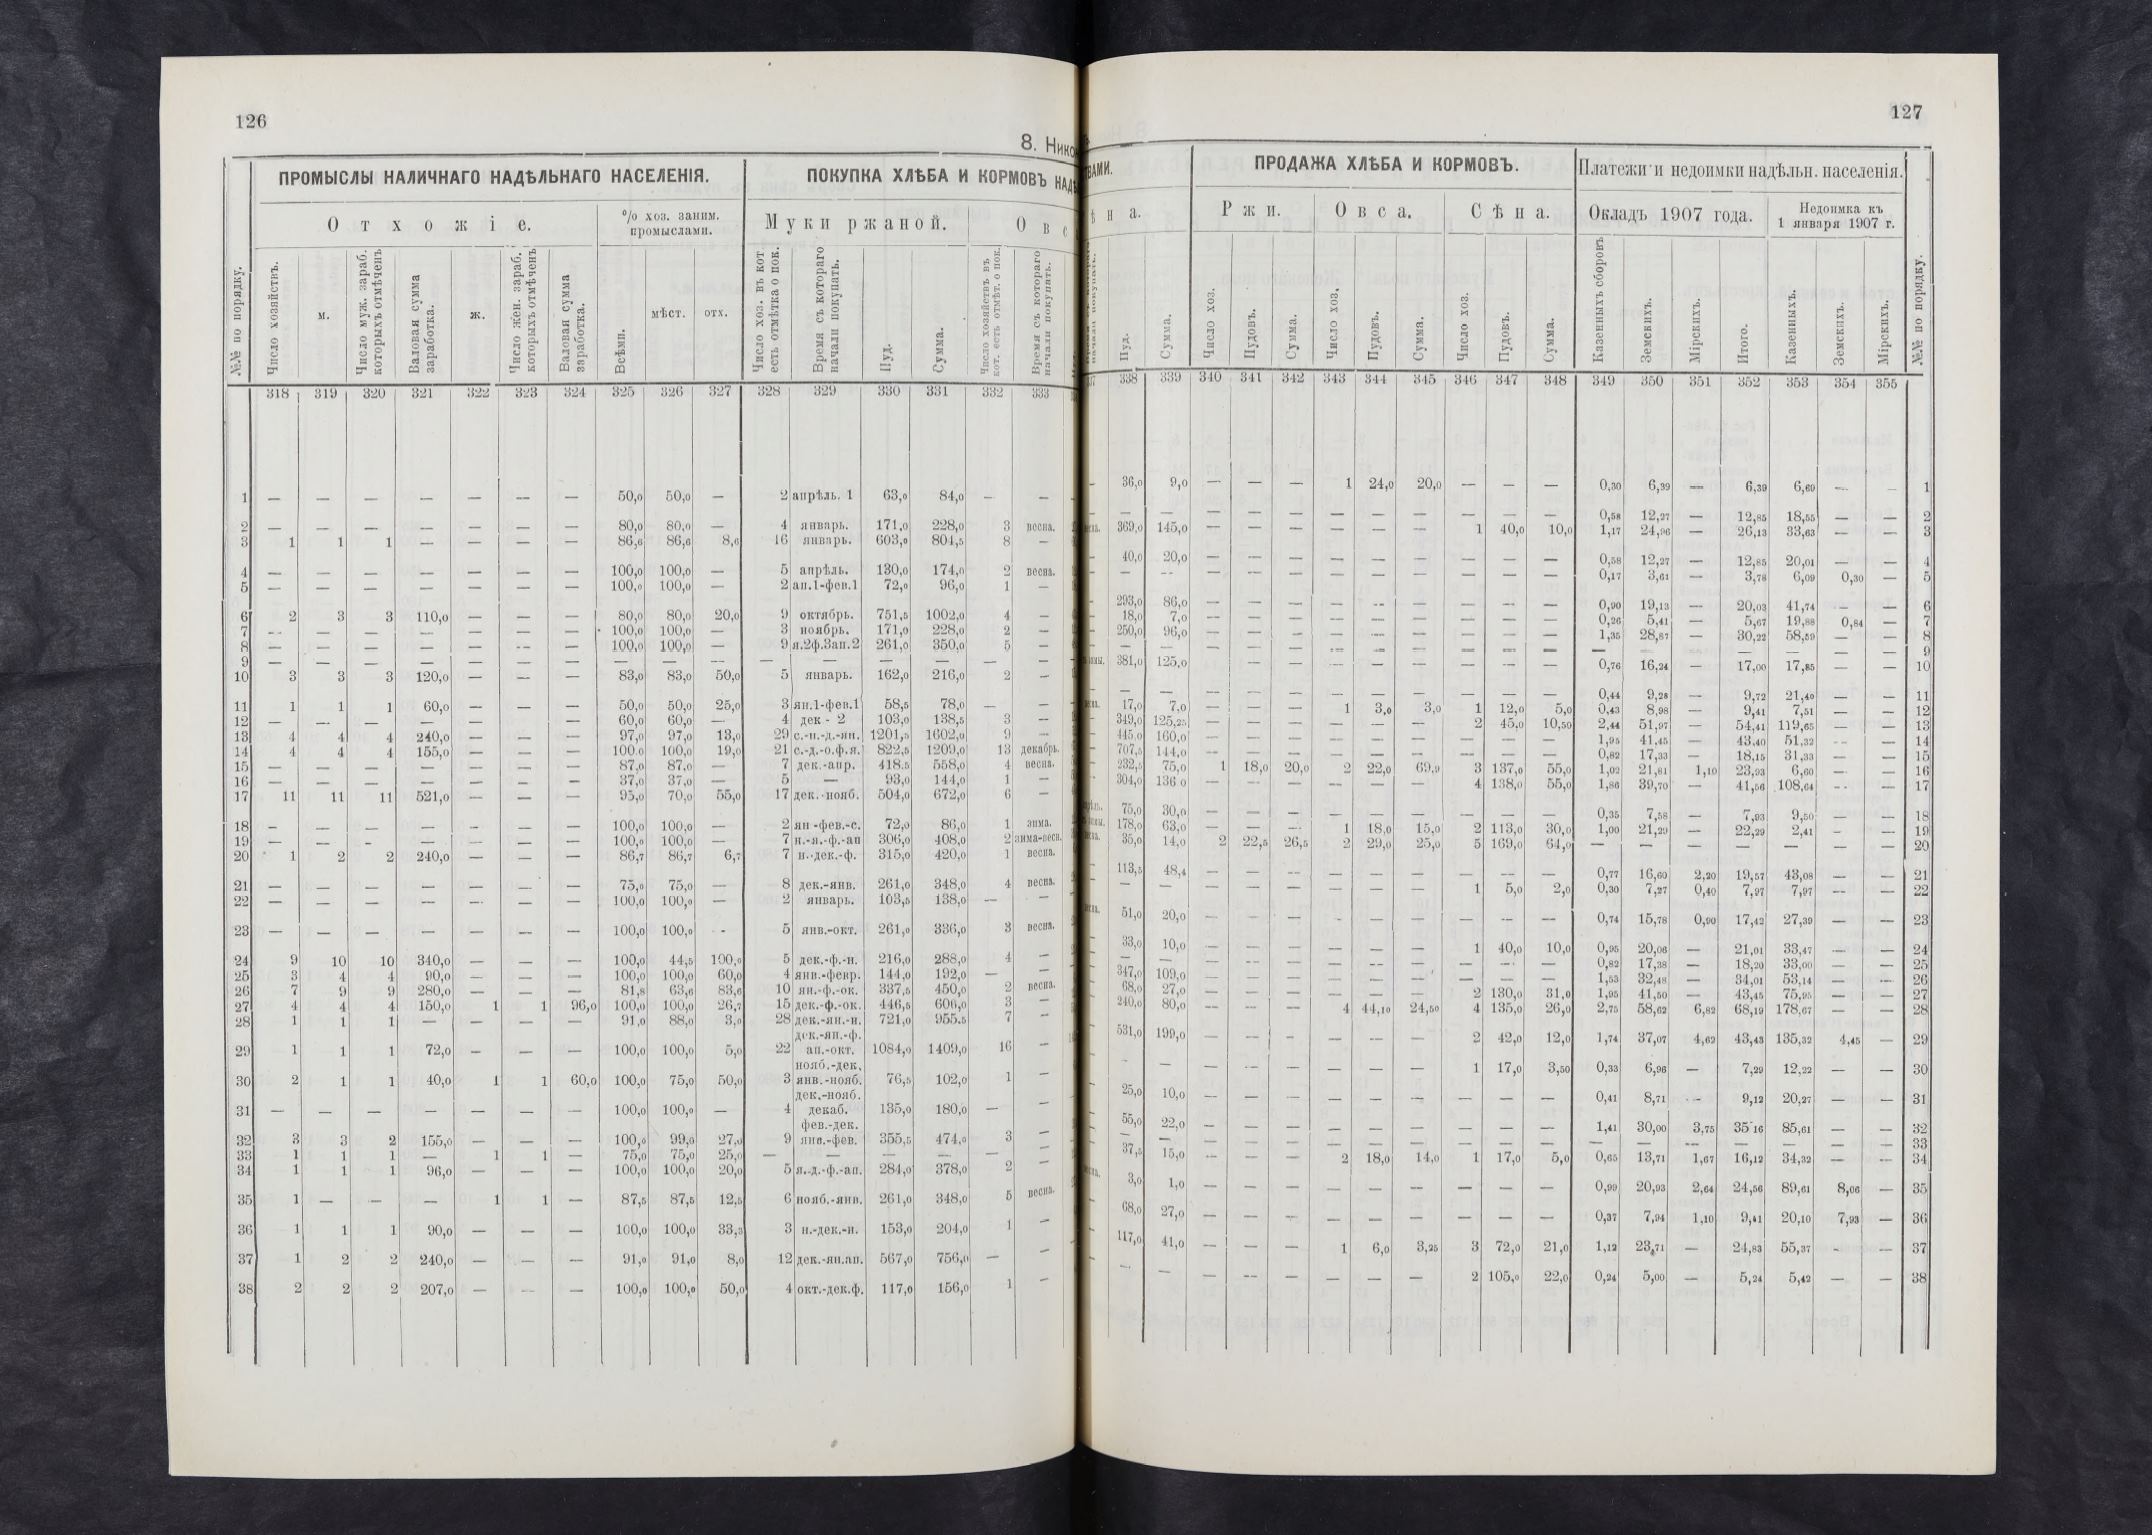 126
8. Нико
ПРОМЫСЛЫ НАЛИЧНАГО НАДѢЛЬНАГО НАСЕЛЕНІЯ.
ПОКУПКА ХЛѢБА И КОРМОВЪ НАДѢ
Отхожіе.
% хоз. заним. промыслами.
Муки ржаной.
Овс
№№ по порядку.
Число хозяйствъ.
м.
Число муж. зараб. которыхъ отмѣченъ
Валовая сумма заработка.
ж.
Число жен. зараб. которыхъ отмѣченъ
Валовая сумма заработка.
Всѣми.
мѣст.
отх.
Число хоз. въ кот есть отмѣтка о пок.
Время съ котораго начали покупать.
Пуд.
Сумма.
Число хозяйствъ въ кот. есть отмѣт. о пок.
Время съ котораго начали покупать.
318 319 320 321 322 323 324 325 326 327 328 329 330 331 332 333
1 — — — — — — — 50,0 50,0 — 2 апрѣль. 1 63,0 84,0 — —
2 — — — — — — — 80,0 80,0 — 4 январь. 171,0 228,0 3 весна.
3 1 1 1 — — — — 86,6 86,6 8,6 16 январь. 603,0 804,5 8 —
4 — — — — — — — 100,0 100,0 — 5 апрѣль. 130,0 174,0 2 весна.
5 — — — — — — — 100,0 100,0 — 2 ап.1-фев.1 72,0 96,0 1 —
6 2 3 3 110,0 — — — 80,0 80,0 20,0 9 октябрь. 751,5 1002,0 4 —
7 — — — — — — — 100,0 100,0 — 3 ноябрь. 171,0 228,0 2 —
8 — — — — — — — 100,0 100,0 — 9 я.2ф.3ап.2 261,0 350,0 5 —
9 — — — — — — — — — — — — — — — —
10 3 3 3 120,0 — — — 83,0 83,0 50,0 5 январь. 162,0 216,0 2 —
11 1 1 1 60,0 — — — 50,0 50,0 25,0 3 ян.1-фев.1 58,5 78,0 — —
12 — — — — — — — 60,0 60,0 — 4 дек - 2 103,0 138,5 3 —
13 4 4 4 240,0 — — — 97,0 97,0 13,0 29 с.-н.-д.-ян. 1201,5 1602,0 9 —
14 4 4 4 155,0 — — — 100,0 100,0 19,0 21 с.-д.-о.ф.я. 822,5 1209,0 13 декабрь.
15 — — — — — — — 87,0 87,0 — 7 дек.-апр. 418,5 558,0 4 весна.
16 — — — — — — — 37,0 37,0 — 5 — 93,0 144,0 1 —
17 11 11 11 521,0 — — — 95,0 70,0 55,0 17 дек.-нояб. 504,0 672,0 6 —
18 — — — — — — — 100,0 100,0 — 2 ян -фев.-с. 72,0 86,0 1 зима.
19 — — — — — — — 100,0 100,0 — 7 н.-я.-ф.-ап 306,0 408,0 2 зима-весн.
20 1 2 2 240,0 — — — 86,7 86,7 6,7 7 н.-дек.-ф. 315,0 420,0 1 весна.
21 — — — — — — — 75,0 75,0 — 8 дек.-янв. 261,0 348,0 4 весна.
22 — — — — — — — 100,0 100,0 — 2 январь. 103,5 138,0 —
23 — — — — — — — 100,0 100,0 - 5 янв.-окт. 261,0 336,0 3 весна.
24 9 10 10 340,0 — — — 100,0 44,5 100,0 5 дек.-ф.-н. 216,0 288,0 4 —
25 3 4 4 90,0 — — — 100,0 100,0 60,0 4 янв.-февр. 144,0 192,0 —
26 7 9 9 280,0 — — — 81,8 63,6 83,6 10 ян.-ф.-ок. 337,5 450,0 2 весна.
27 4 4 4 150,0 1 1 96,0 100,0 100,0 26,7 15 дек.-ф.-ок. 446,5 606,0 3 —
28 1 1 1 — — — — 91,0 88,0 3,0 28 дек.-ян.-н. 721,0 955,5 7 —
дек.-ян.-ф.
29 1 1 1 72,0 — — — 100,0 100,0 5,0 22 ап.-окт. 1084,0 1409,0 16 —
нояб.-дек.
30 2 1 1 40,0 1 1 60,0 100,0 75,0 50,0 3 янв.-нояб. 76,5 102,0 1 —
дек.-нояб.
31 — — — — — — — 100,0 100,0 — 4 декаб. 135,0 180,0 — —
фев.-дек.
32 3 3 2 155,0 — — — 100,0 99,0 27,0 9 янв.-фев. 355,5 474,0 3 —
33 1 1 1 — 1 1 — 75,0 75,0 25,0 — — — — — —
34 1 1 1 96,0 — — — 100,0 100,0 20,0 5 я.-д.-ф.-ап. 284,0 378,0 2 —
35 1 — — — 1 1 — 87,5 87,5 12,5 6 нояб.-янв. 261,0 348,0 5 весна.
36 1 1 1 90,0 — — — 100,0 100,0 33,3 3 н.-дек.-н. 153,0 204,0 1 —
37 1 2 2 240,0 — — — 91,0 91,0 8,0 12 дек.-ян.ап. 567,0 756,0 — —
38 2 2 2 207,0 — — — 100,0 100,0 50,0 4 окт.-дек.ф. 117,0 156,0 1 —
127
ВАМИ.
ПРОДАЖА ХЛѢБА И КОРМОВЪ.
Платежи и недоимки надѣльн. населенія.
ѣна.
Ржи.
Овса.
Сѣна.
Окладъ 1907 года.
Недоимка къ 1 января 1907 г.
Пуд.
Сумма.
Число хоз.
Пудовъ.
Сумма.
Число хоз.
Пудовъ.
Сумма.
Число хоз.
Пудовъ.
Сумма.
Казенныхъ сборовъ
Земскихъ.
Мірскихъ.
Итого.
Казенныхъ.
Земскихъ.
Мірскихъ.
№№ по порядку.
338 339 340 341 342 343 344 345 346 347 348 349 350 351 352 353 354 355
36,0 9,0 — — — 1 24,0 20,0 — — — 0,30 6,39 — 6,39 6,69 — — 1
— — — — — — — — — — — 0,58 12,27 — 12,85 18,55 — — 2
369,0 145,0 — — — — — — 1 40,0 10,0 1,17 24,96 — 26,13 33,63 — — 3
40,0 20,0 — — — — — — — — — 0,58 12,27 — 12,85 20,01 — — 4
— — — — — — — — — — — 0,17 3,61 — 3,78 6,09 0,30 — 5
293,0 86,0 — — — — — — — — — 0,90 19,13 — 20,03 41,74 — — 6
18,0 7,0 — — — — — — — — — 0,26 5,41 — 5,67 19,88 0,84 — 7
250,0 96,0 — — — — — — — — — 1,35 28,87 — 30,22 58,59 — — 8
— — — — — — — — — — — — — — — — 9
381,0 125,0 — — — — — — — — — 0,76 16,24 — 17,00 17,85 — — 10
— — — — — — — — — — — 0,44 9,28 — 9,72 21,40 — — 11
17,0 7,0 — — — 1 3,0 3,0 1 12,0 5,0 0,43 8,98 — 9,41 7,51 — — 12
349,0 125,25 — — — — — — 2 45,0 10,50 2,44 51,97 — 54,41 119,65 — — 13
445,0 160,0 — — — — — — — — — 1,95 41,45 — 43,40 51,32 — — 14
707,5 144,0 — — — — — — — — — 0,82 17,33 — 18,15 31,33 — — 15
232,5 75,0 1 18,0 20,0 2 22,0 69,0 3 137,0 55,0 1,02 21,81 1,10 23,93 6,60 — — 16
304,0 136 0 4 138,0 55,0 1,86 39,70 — 41,56 108,64 — — 17
75,0 30,0 — — — — — — — — — 0,35 7,58 — 7,93 9,50 — — 18
178,0 63,0 — — — 1 18,0 15,0 2 113,0 30,0 1,00 21,29 — 22,29 2,41 — — 19
35,0 14,0 2 22,5 26,5 2 29,0 25,0 5 169,0 64,0 — — — — — — — 20
113,5 48,4 — — — — — — — — — 0,77 16,60 2,20 19,57 43,08 — — 21
— — — — — — — — 1 5,0 2,0 0,30 7,27 0,40 7,97 7,97 — — 22
51,0 20,0 — — — — — — — — — 0,74 15,78 0,90 17,42 27,39 — — 23
33,0 10,0 — — — — — — 1 40,0 10,0 0,95 20,06 — 21,01 33,47 — — 24
— — — — — — — — — — — 0,82 17,38 — 18,20 33,00 — — 25
347,0 109,0 — — — — — — — — — 1,53 32,48 — 34,01 53,14 — — 26
68,0 27,0 — — — — — — 2 130,0 31,0 1,95 41,50 — 43,45 75,95 — — 27
240,0 80,0 — — — 4 44,10 24,50 4 135,0 26,0 2,75 58,62 6,82 68,19 178,67 — — 28
531,0 199,0 — — — — — — 2 42,0 12,0 1,74 37,07 4,62 43,43 135,32 4,45 — 29
— — — — — — — — 1 17,0 3,50 0,33 6,96 — 7,29 12,22 — — 30
25,0 10,0 — — — — — — — — — 0,41 8,71 — 9,12 20,27 — — 31
55,0 22,0 — — — — — — — — — 1,41 30,00 3,75 35 16 85,61 — — 32
— — — — — — — — — — — — — — — — — — 33
37,5 15,0 — — — 2 18,0 14,0 1 17,0 5,0 0,65 13,71 1,67 16,12 34,32 — — 34
3,0 1,0 — — — — — — — — — 0,99 20,93 2,64 24,56 89,61 8,06 — 35
68,0 27,0 — — — — — — — — — 0,37 7,94 1,10 9,41 20,10 7,93 — 36
117,0 41,0 — — — 1 6,0 3,25 3 72,0 21,0 1,12 23,71 — 24,83 55,37 — — 37
— — — — — — — — 2 105,0 22,0 0,24 5,00 — 5,24 5,42 — — 38